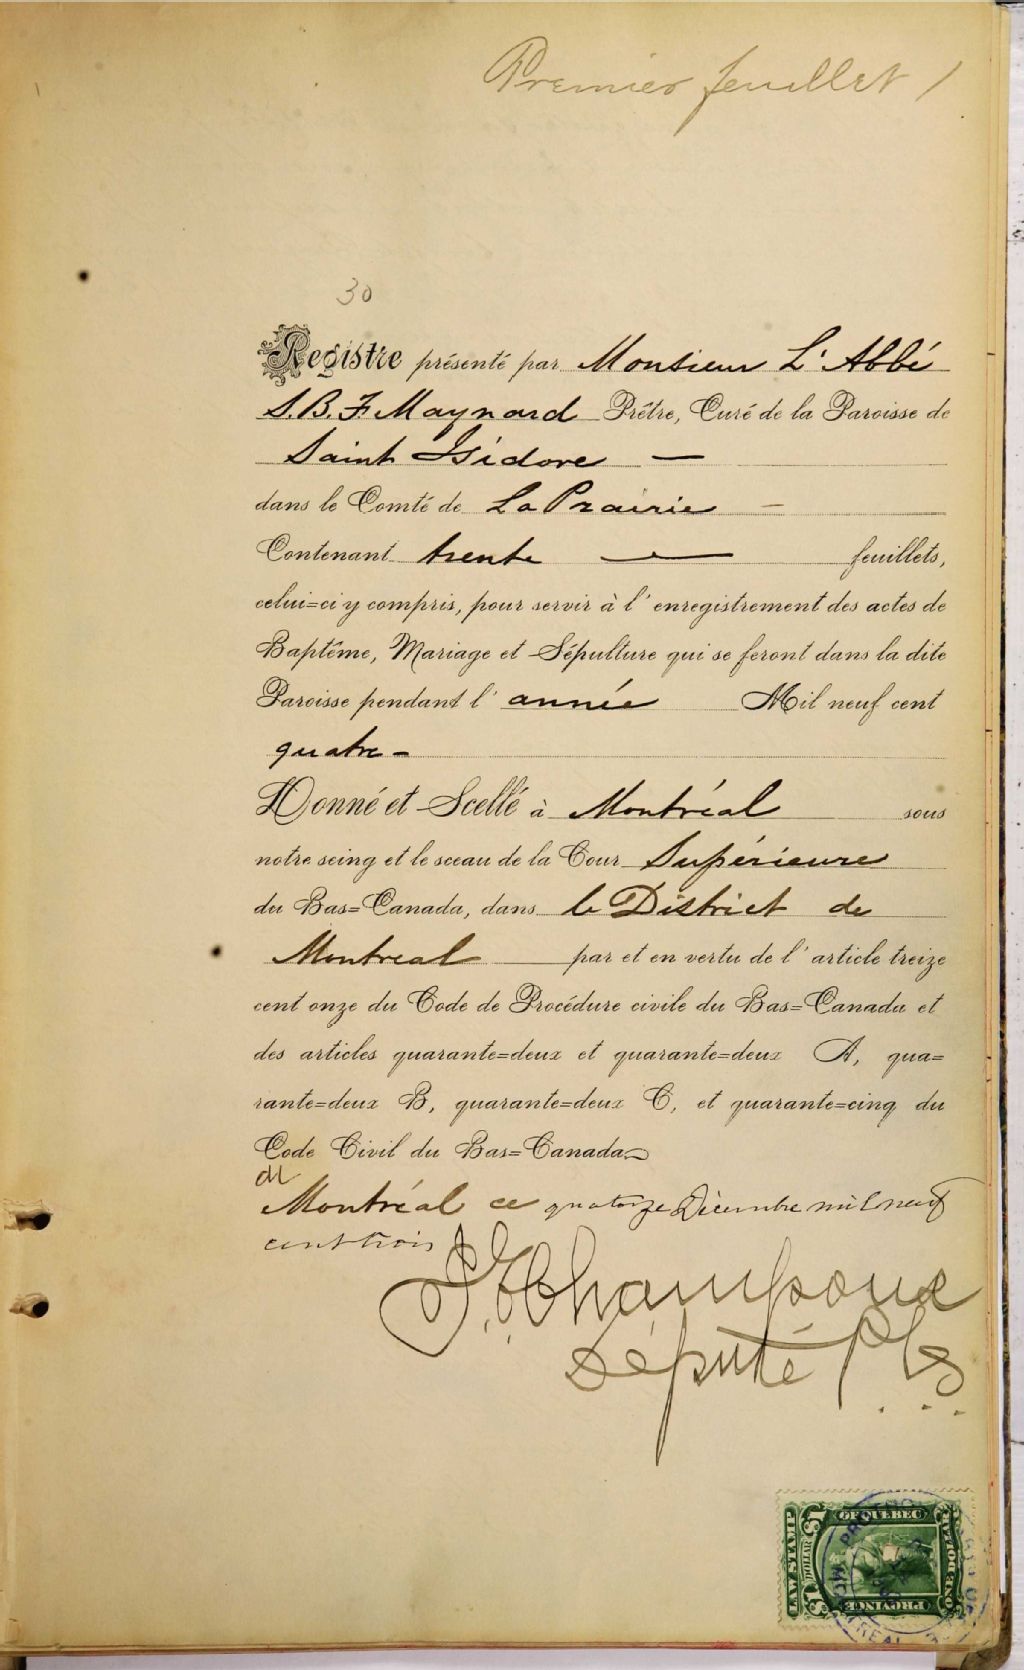 Premier feuillet 1
30
Registre présenté par Monsieur L'Abbé
S.B.F. Maynard Prêtre, Curé de la Paroisse de
Saint Isidore —
dans le Comté de La Prairie —
Contenant trente — feuillets,
celui=ci y compris, pour servir à l'enregistrement des actes de
Baptême, Mariage et Sépulture qui se feront dans la dite
Paroisse pendant l'année Mil neuf cent
quatre -
Donné et Scellé à Montréal sous
notre seing et le sceau de la Cour Supérieure
du Bas=Canada, dans le District de
Montreal par et en vertu de l'article treize
cent onze du Code de Procédure civile du Bas=Canada et
des articles quarante=deux et quarante=deux A, qua=
rante=deux B, quarante=deux C, et quarante=cinq du
Code Civil du Bas=Canada
Montréal ce quatorze Décembre mil neuf
cent trois
Champoux
Député P.C.S.
LAW STAMP
OF QUEBEC
PROVINCE
ONE DOLLAR
$1 DOLLAR